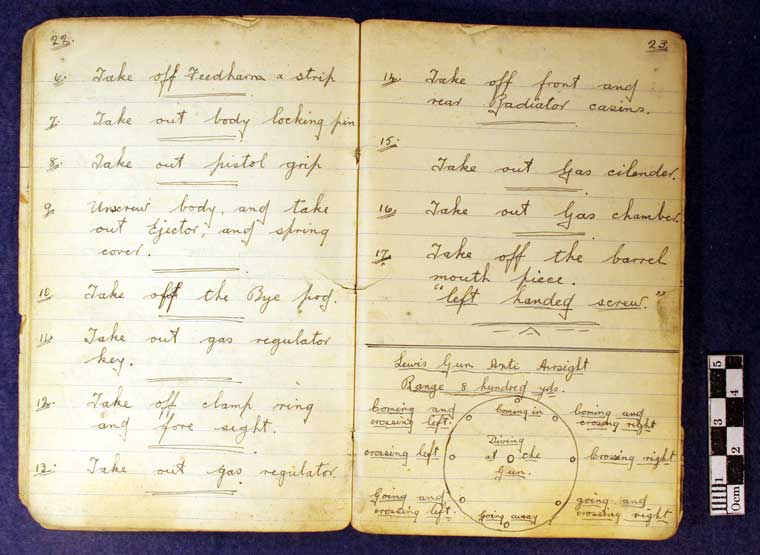 22.
6. Take off Feedharm & strip
7. Take out body locking pin
8. Take out pistol grip
9. Unscrew body, and take
out Ejector, and spring
cover.
10. Take off the Bye pod.
11. Take out gas regulator
key.
12. Take off clamp ring
and fore sight.
13. Take out gas regulator.
23.
14. Take off front and
rear Radiator casins.
15.
Take out Gas cilender.
16. Take out Gas chamber.
17. Take off the barrel
mouth piece.
"left handed screw."
Lewis Gun Anti Airsight
Range 8 hundred yds.
Coming and
crossing left.
Coming in
Coming and
crossing right
crossing left
Diving
at the
Gun.
Crossing right
Going and
crossing left.
Going away
going and
crossing right
0cm 1 2 3 4 5